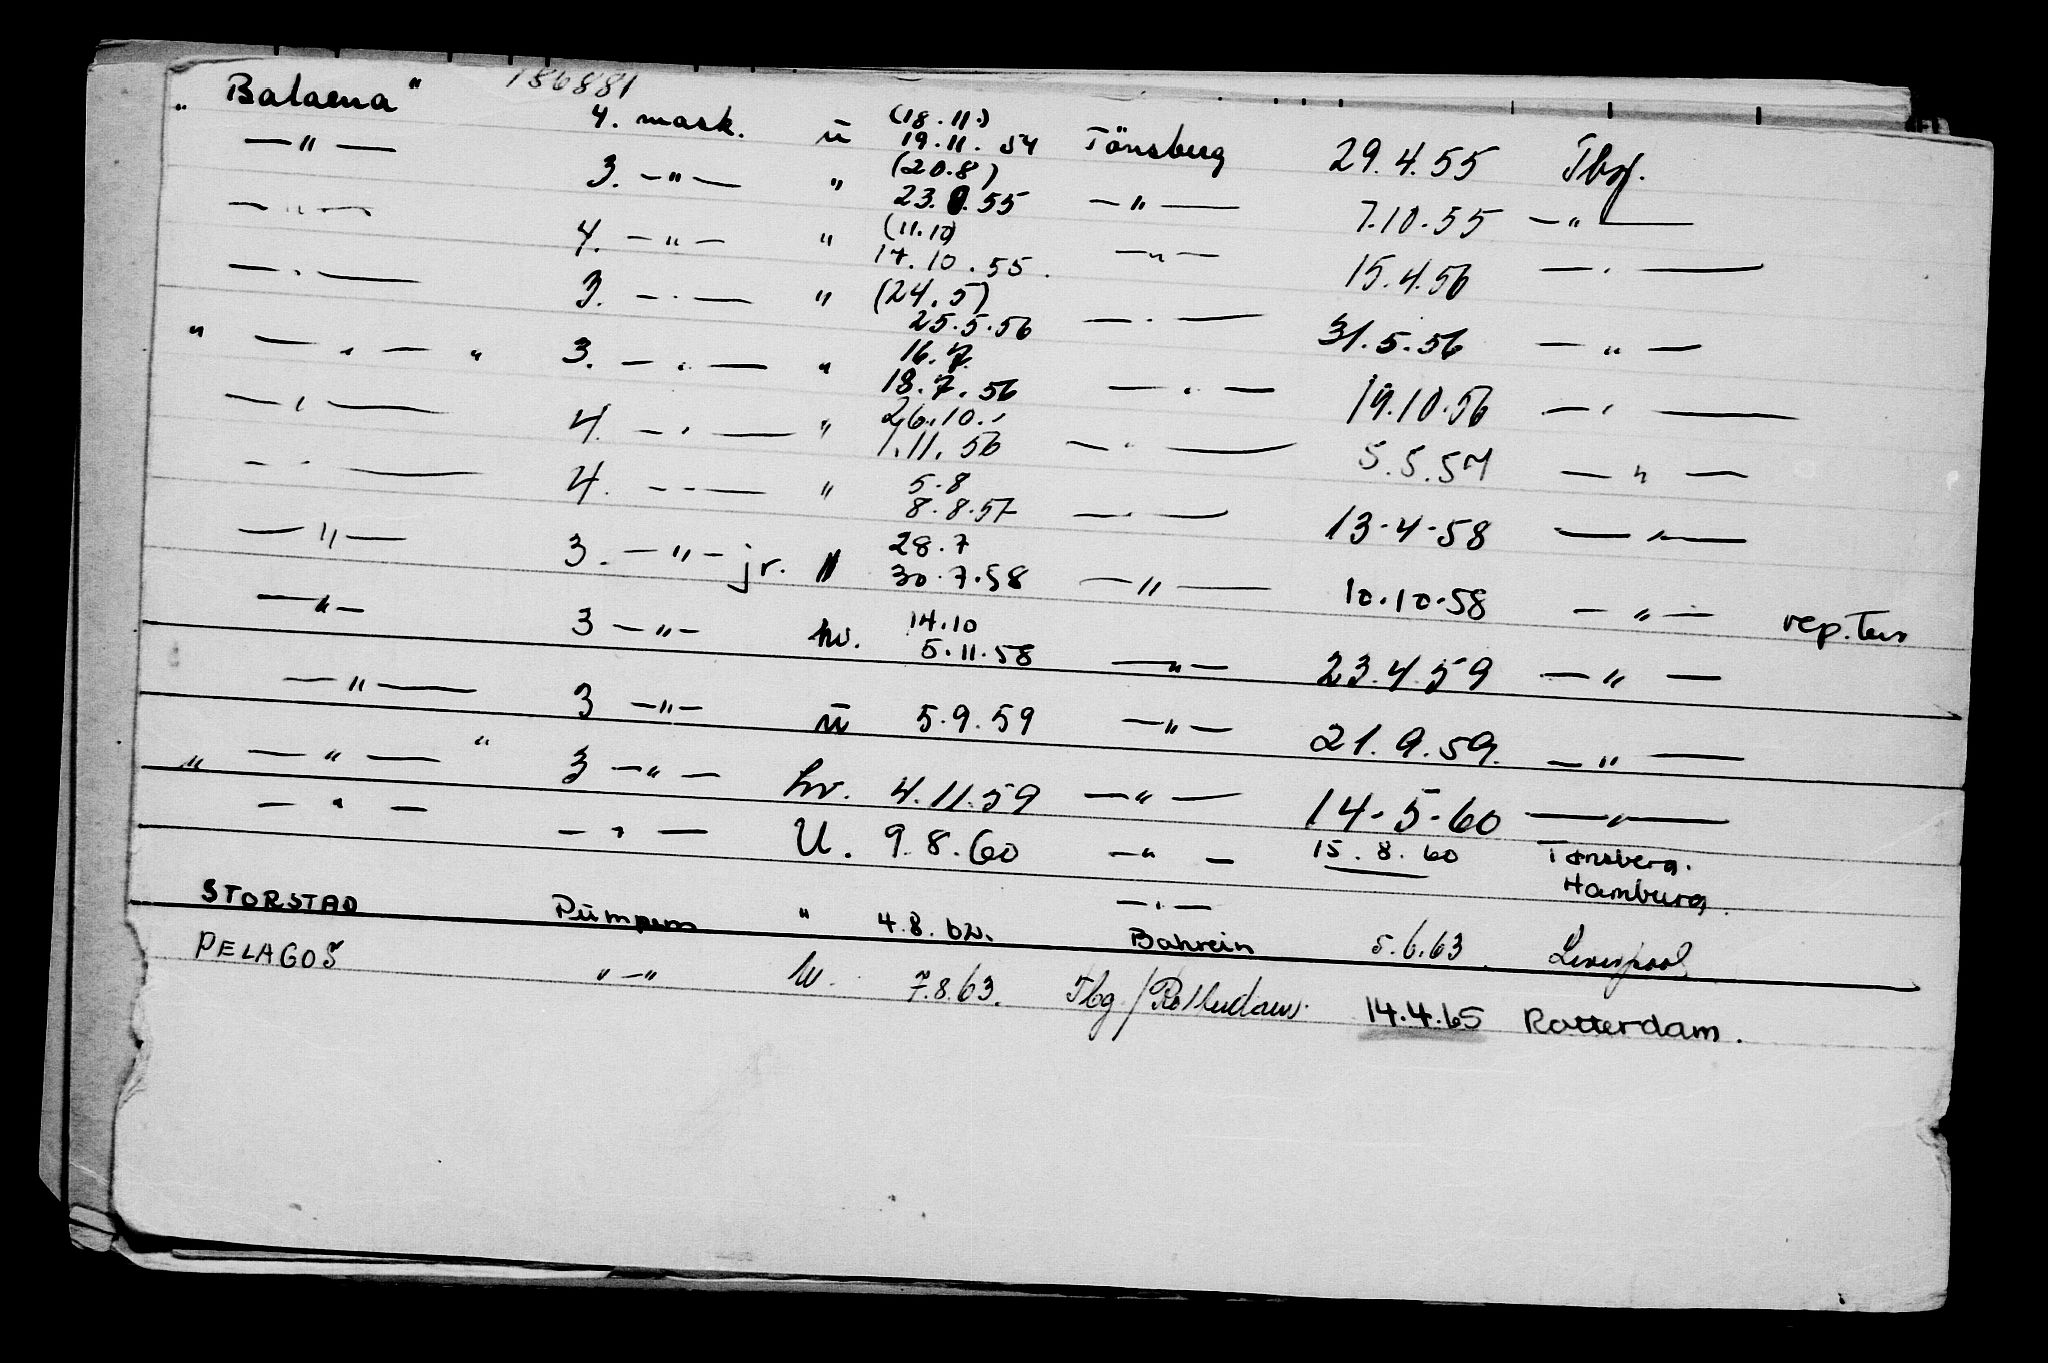 "Balaena" 186881
4. mask. ü (18.11.) 19.11.54 Tönsberg 29.4.55 Tbg.
—"— 3. —"— " (20.8) 23.8.55 —"— 7.10.55 —"—
—"— 4. —"— " (11.10) 17.10.55. —"— 15.4.56 —"—
—"— 3. —"— " (24.5) 25.5.56 —"— 31.5.56 —"—
" —"— " 3. —"— " 16.7. 18.7.56 —"— 19.10.56 —"—
—"— 4. —"— " 26.10. 1.11.56 —"— 5.5.57 —"—
—"— 4. —"— " 5.8 8.8.57 —"— 13.4.58 —"—
—"— 3. —"— jr. " 28.7 30.7.58 —"— 10.10.58 —"— rep.
—"— 3 —"— hv. 14.10 5.11.58 —"— 23.4.59 —"—
—"— 3 —"— ü 5.9.59 —"— 21.9.59. —"—
" —"— " 3 —"— hv. 4.11.59 —"— 14.5.60 —"—
—"— —"— U. 9.8.60 —"— 15.8.60 Tønsberg. Hamburg.
STORSTAD Pumpem " 4.8.62. —"— Bahrein 5.6.63. Liverpool
PELAGOS "—" hv. 7.8.63. Tbg/Rotterdam. 14.4.65 Rotterdam.